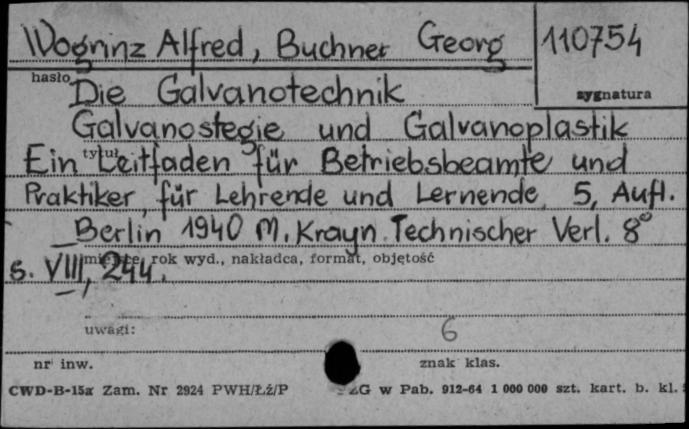 Wogrinz Alfred, Buchner Georg
110754
hasło
sygnatura
Die Galvanotechnik
Galvanostegie und Galvanoplastik
tytuł
Ein Leitfaden für Betriebsbeamte und
Praktiker, für Lehrende und Lernende, 5, Aufl.
Berlin 1940 M. Krayn Technischer Verl. 8°
miejsce, rok wyd., nakładca, format, objętość
s. VIII, 244.
uwagi:
6
nr inw.
znak klas.
CWD-B-15a Zam. Nr 2924 PWH/Łź/P ZG w Pab. 912-64 1 000 000 szt. kart. b. kl.